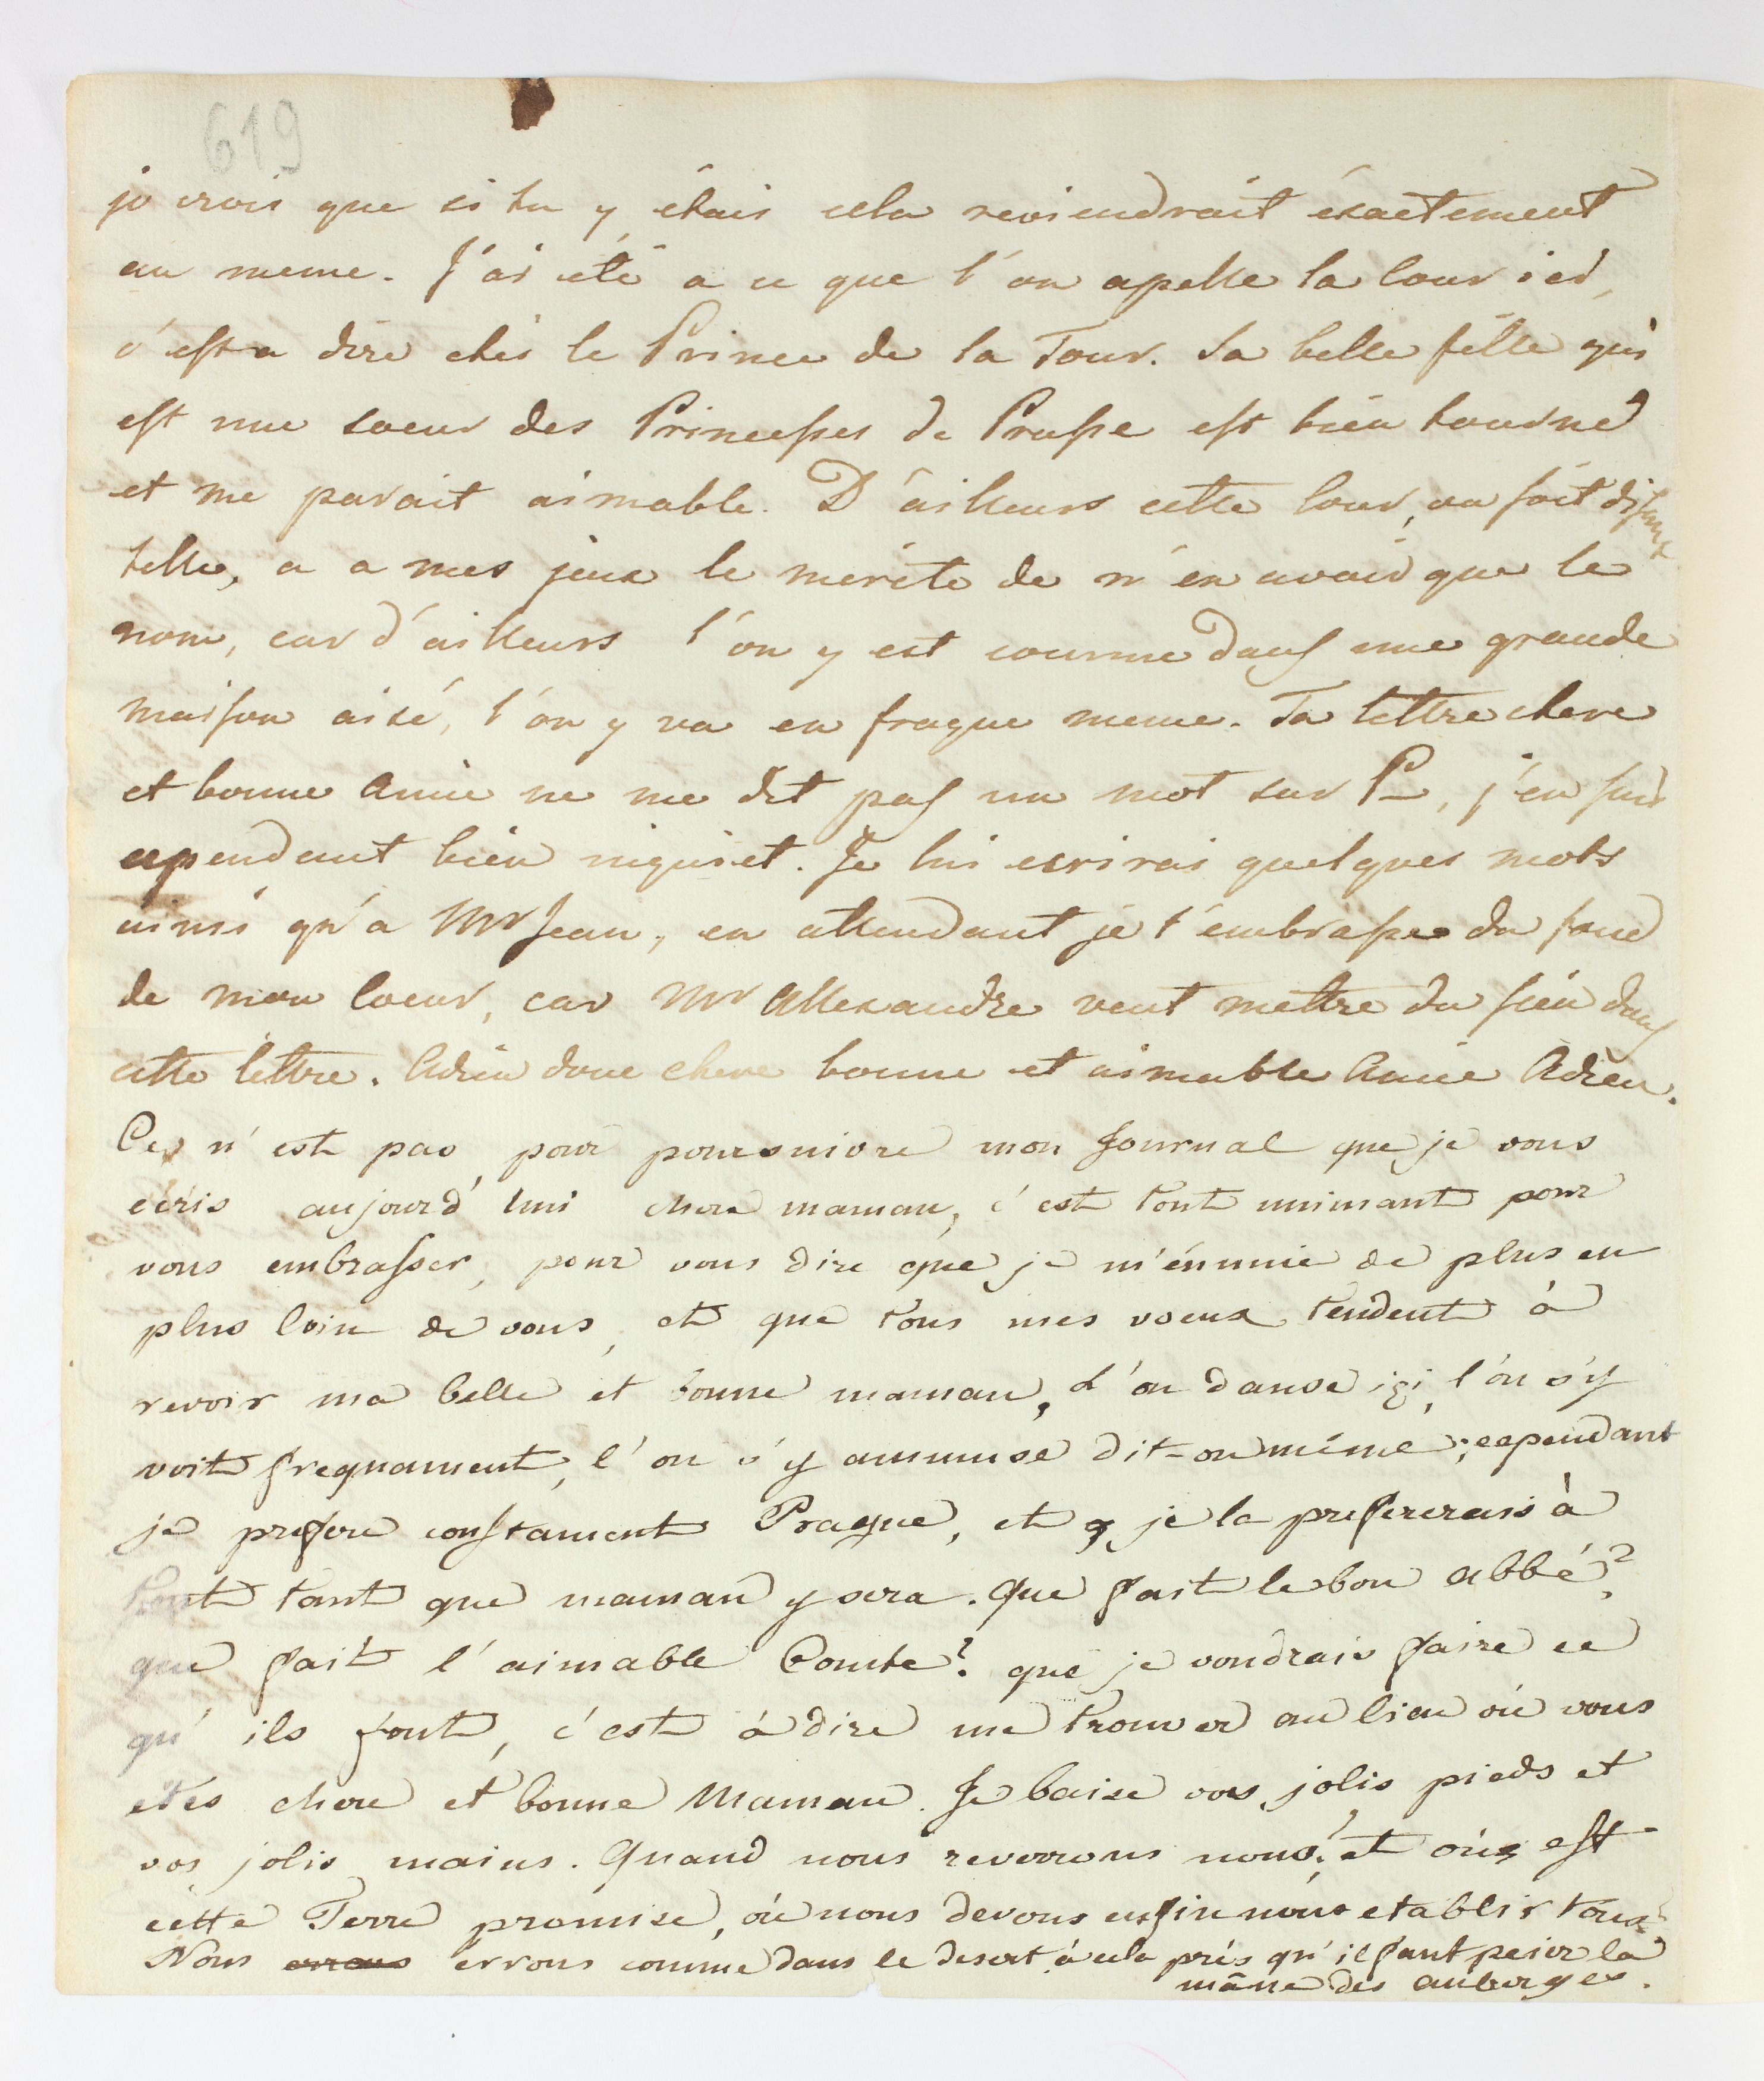 619
je crois que si tu y étais cela reviendrait éxactement
au meme. J'ai été a ce que l'on apelle la Cour ici,
c'est a dire chés le Prince de la Tour. Sa belle fille qui
est une soeur des Princesses de Prusse est bien tourné
et me parait aimable. D'ailleurs cette Cour, ou soit disant
telle, a a mes jeux le merite de n'en avoir que le
nom, car d'ailleurs l'on y est comme dans une grande
maison aisé, l'on y va en fraque meme. Ta lettre chere
et bonne Amie ne me dit pas un mot sur P–, j'en suis
cependant bien inquiet. Je lui ecrirai quelques mots
ainsi qu'a Mr Jean, en attendant je t'embrasse du fond
de mon Coeur, car Mr Allexandre veut mettre du sien dans
cette lettre. Adieu donc chere bonne et aimable Amie Adieu.
Ce n'est pas pour poursuivre mon Journal que je vous
écris aujourd'hui chere maman, c'est tout unimant pour
vous embrasser, pour vous dire que je m'énnuie de plus en
plus loin de vous, et que tous mes voeux tendent à
revoir ma belle et bonne maman, L'on danse içi, l'on s'y
voit frequament, l'on s'y ammuse dit-on même; cependant
je prefere constament Prague, et je la prefererais à
tout tant que maman y sera. Que fait le bon abbé?
que fait l'aimable Comte? que je voudrais faire ce
qu'ils font, c'est à dire me trouver au lieu où vous
etes chere et bonne Maman. Je baise vos jolis pieds et
vos jolis mains. Quand nous reverrons nous? et où est
cette Terre promise, où nous devons enfin nous etablir tous?
Nous errons errons comme dans le desert à cela près qu'il faut peier la
mâne des auberges.